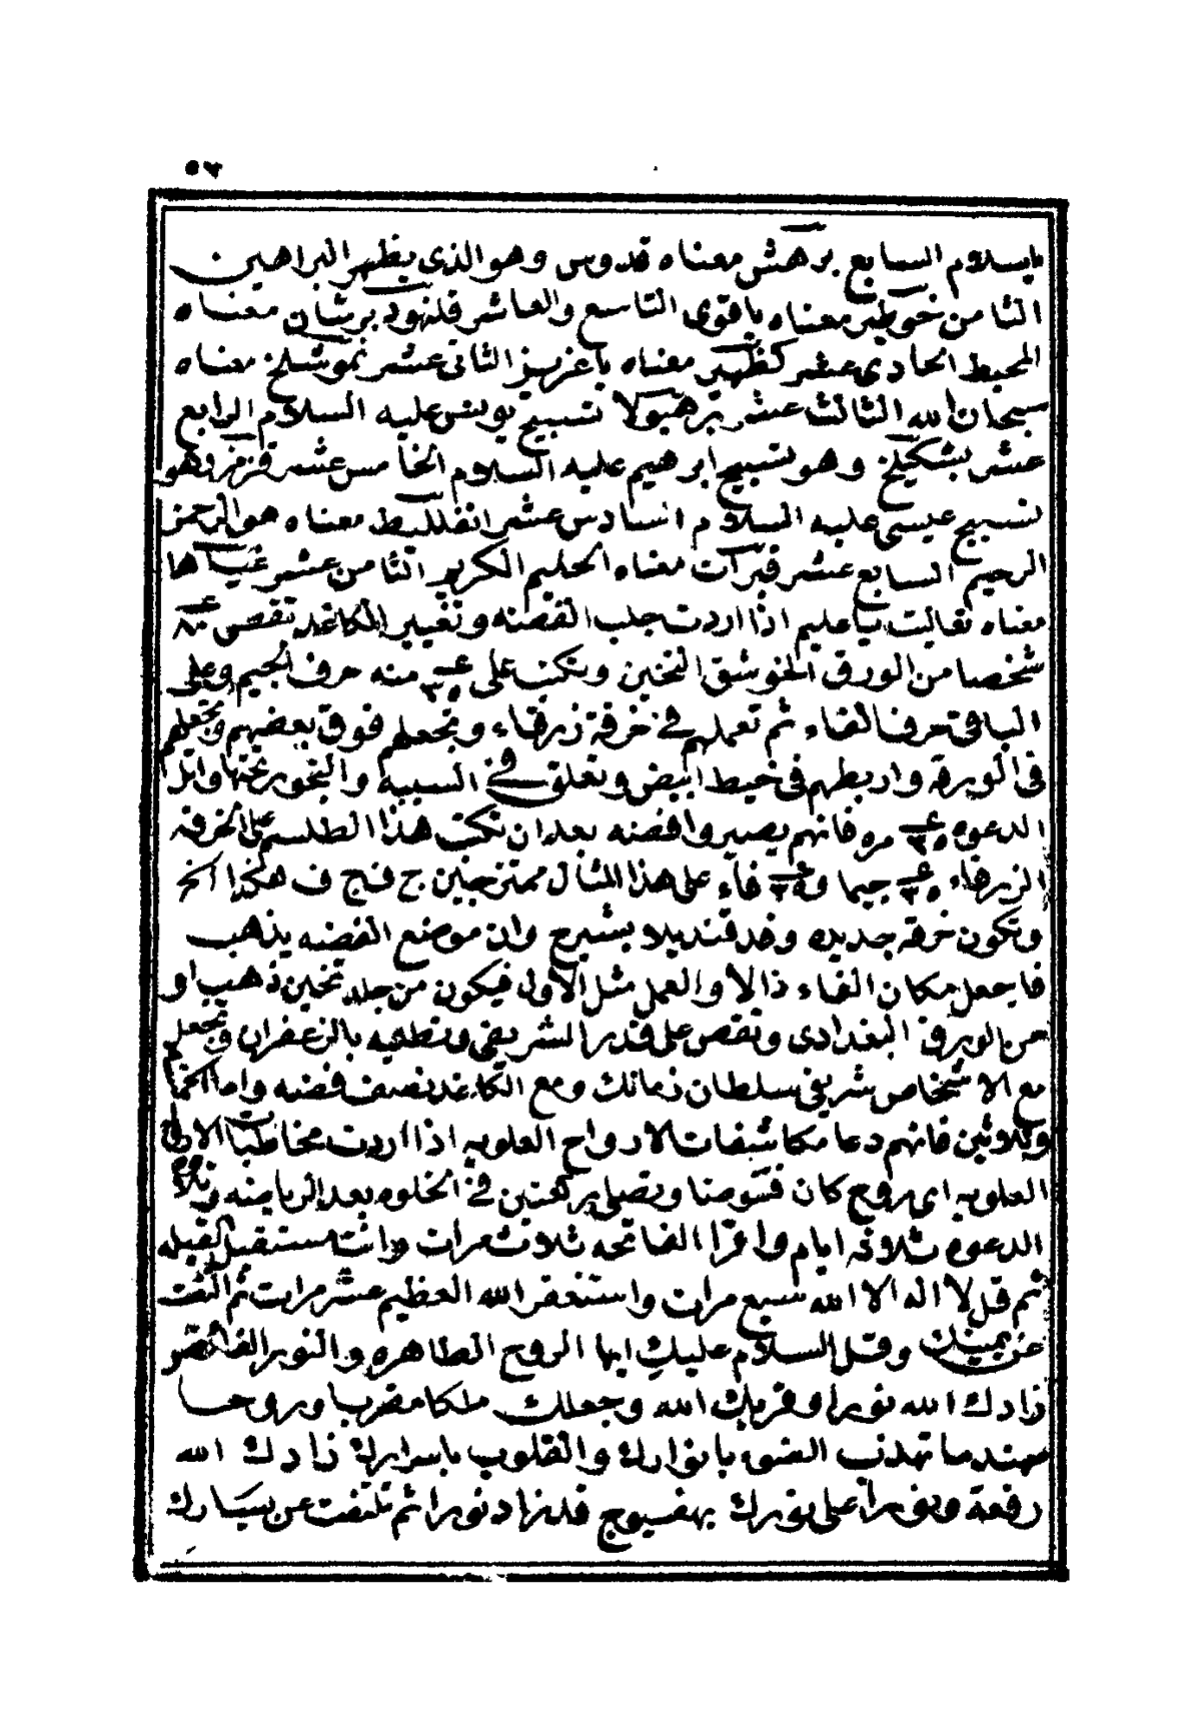 ٥٧
ياسلام السابع برهش معناه قدوس وهو الذى يظهر البراهين
الثامن خوطير معناه ياقوى التاسع والعاشر قلنهود برشان معناه
المحيط الحادى عشر كظهير معناه ياعزيز الثانى عشر نموشلخ معناه
سبحان الله الثالث عشر برهيولا تسبيح يونس عليه السلام الرابع
عشر بشكيلخ وهو تسبيح ابرهيم عليه السلام الخامس عشر قزمز وهو
تسبيح عيسى عليه السلام السادس عشر انغلليط معناه هو الرحمن
الرحيم السابع عشر قبرات معناه الحليم الكريم الثامن عشر غياها
معناه تعاليت ياعليم اذا اردت جلب الفضه وتغيير الكاغد تقصص
شخصا من الورق الخوشق الثخين وتكتب على منه حرف الجيم وعلى
الباقى حرف الفاء ثم تعملهم في خرقة زرقاء وتجعلهم فوق بعضهم وتجعلهم
فى الورقه واربطهم فى خيط ابيض وتعلق في السيبه والبخور تحتها واتل
الدعوه مره فانهم يصيروا فضه بعد ان تكتب هذا الطلسم على الخرقه
الزرقاء جيما و فاء على هذا المثال ممتزجين ج ف ج ف هكذا الخ
وتكون خرقه جديده وخد قنديلا بشيرج وان موضع الفضه يذهب
فاجعل مكان الفاء ذالا والعمل مثل الاول فيكون من جلد ثخين ذهب او
من الورق البغدادى وتقص على قدر الشريفى وتطليه بالزعفران وتجعل
مع الاشخاص شريفى سلطان زمانك ومع الكاغد نصف فضه واما
وثلاثين فانهم دعا مكاشفات الارواح العلويه اذا اردت مخاطبات الارواح
العلويه اى روح كان فتوضا وتصلى ركعتين في الخلوه بعد الرياضه وتلاوة
الدعوه ثلاثه ايام واقرا الفاتحه ثلاث مرات وانت مستقبل القبله
ثم قل لا اله الا الله سبع مرات واستغفر الله العظيم عشر مرات ثم التفت
عن يمينك وقل السلام عليك ايها الروح الطاهره والنور الفائض
زادك الله نورا وقربك الله وجعلك ملكا مقربا وروحا
تهذب الضوء بانوارك والقلوب باسرارك زادك الله
رفعة ونورا على نورك بهفسيوج قد زاد نورا ثم تلتفت عن يسارك